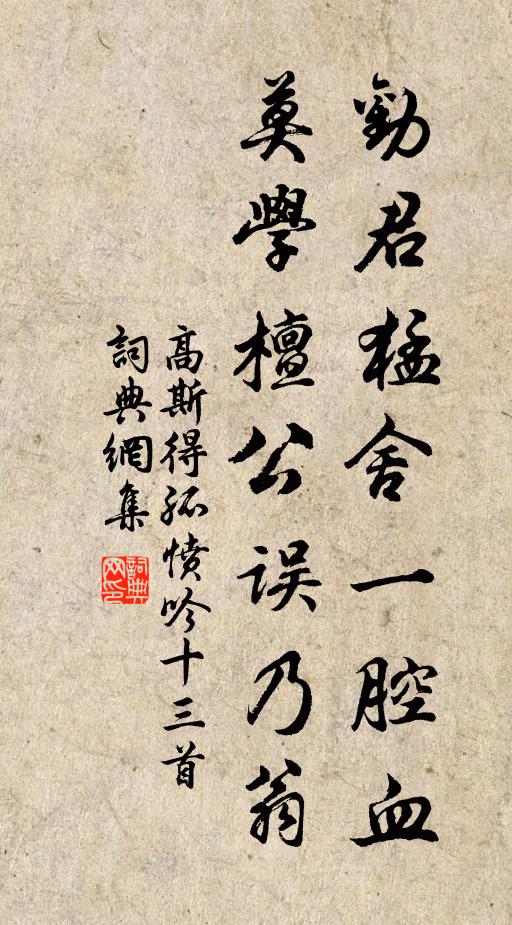 勸君猛舍一腔血
莫學檀公误乃翁
高斯得孤憤吟十三首
詞典網集
詞典网印